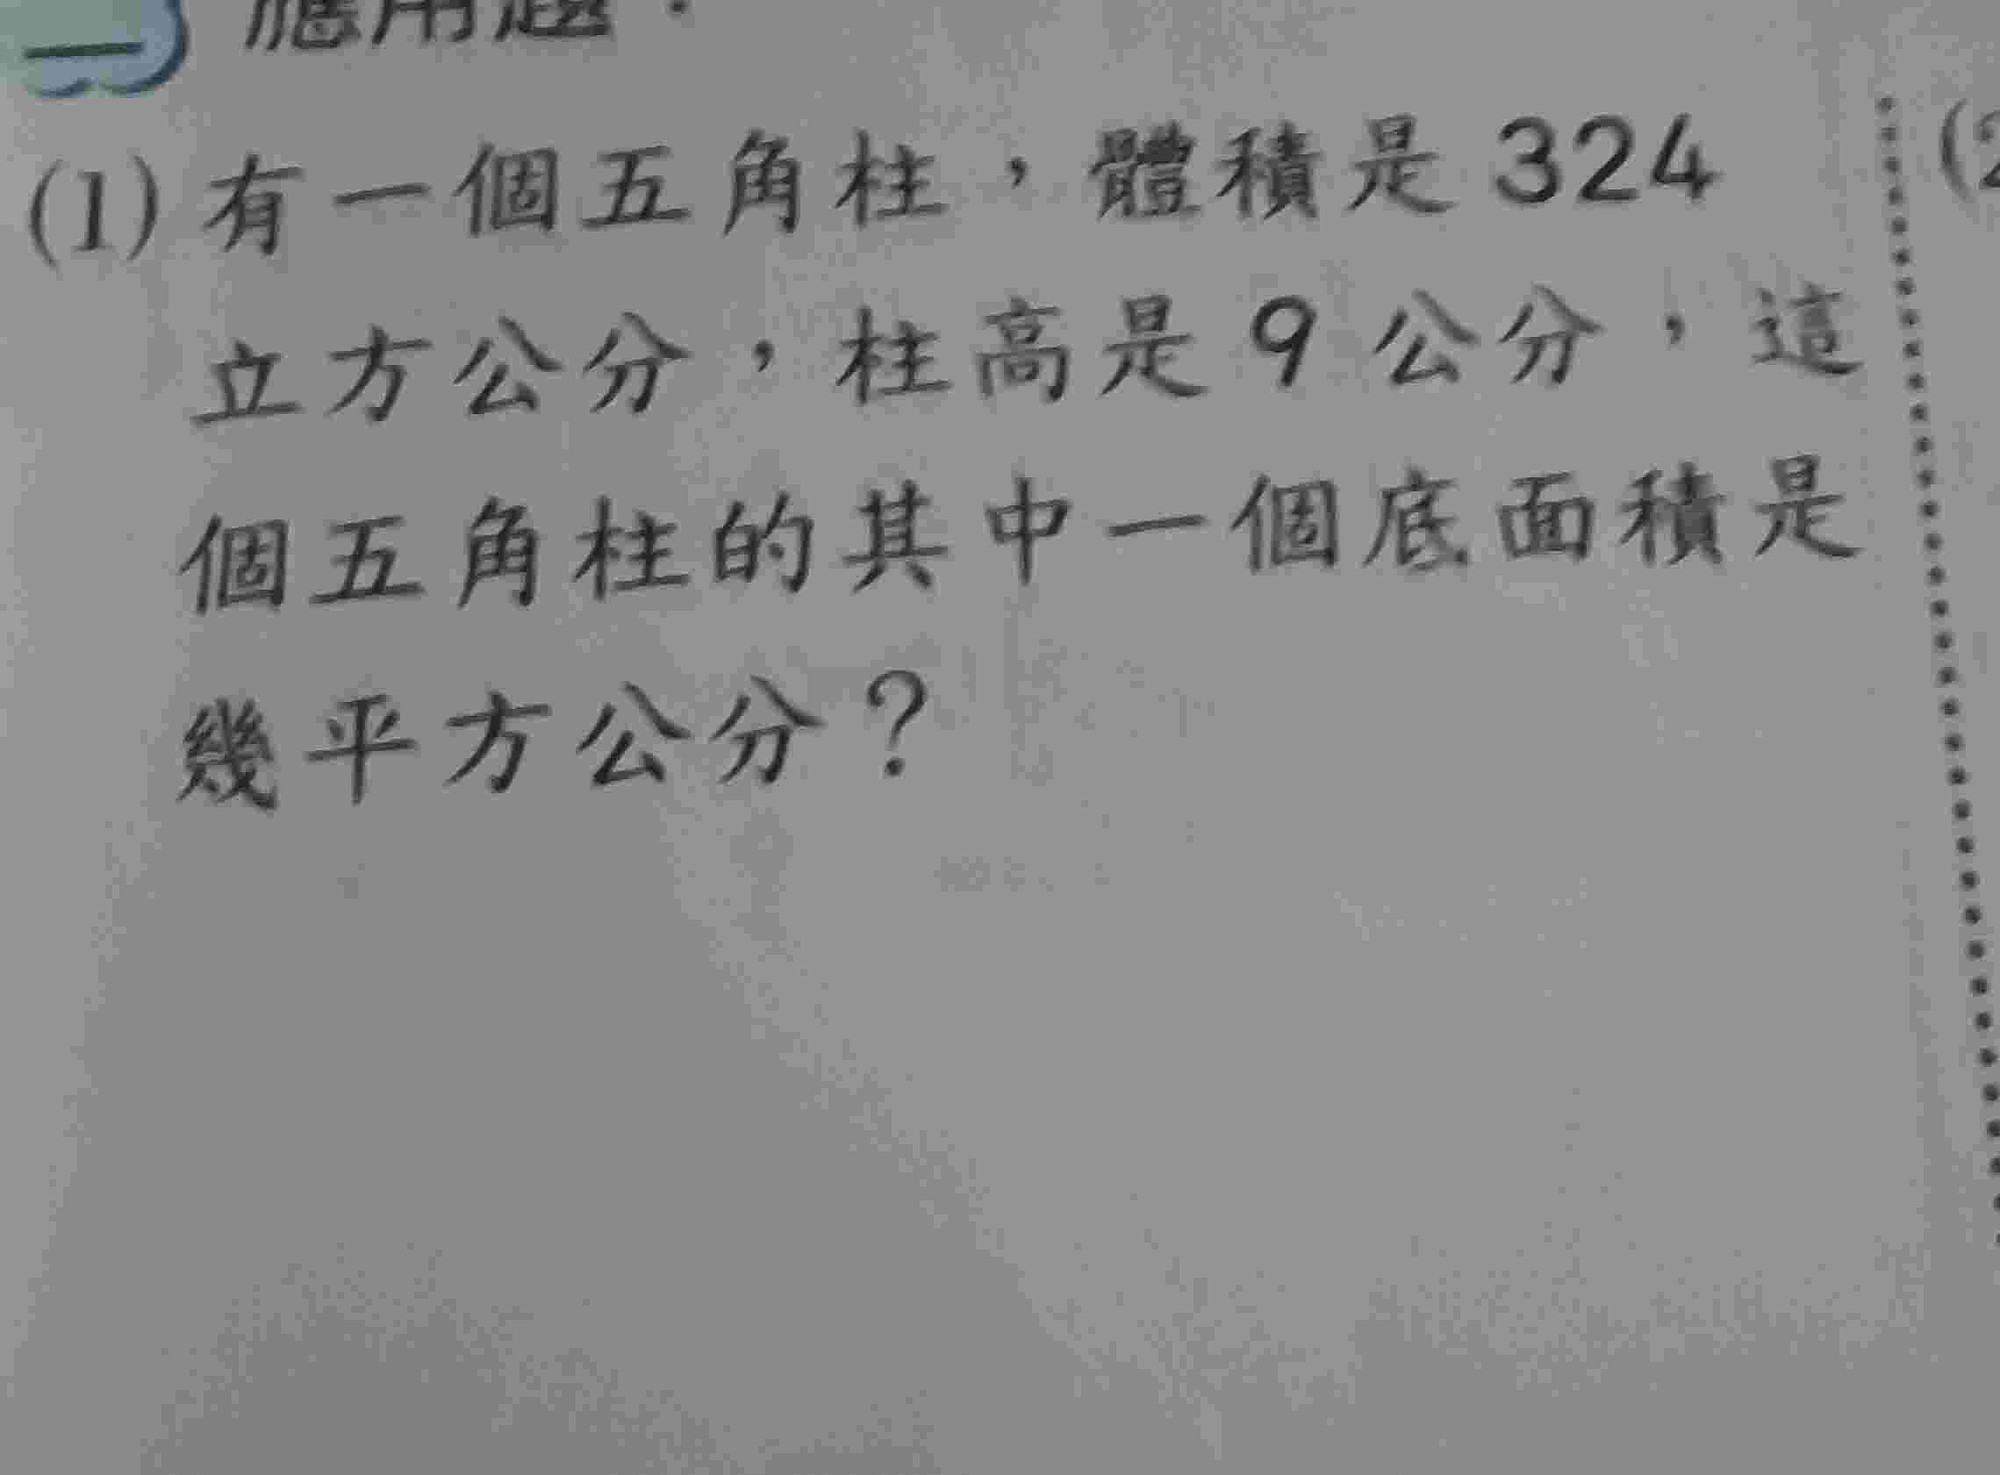 二 應用題：
(1) 有一個五角柱，體積是 324
立方公分，柱高是 9 公分，這
個五角柱的其中一個底面積是
幾平方公分？
(2